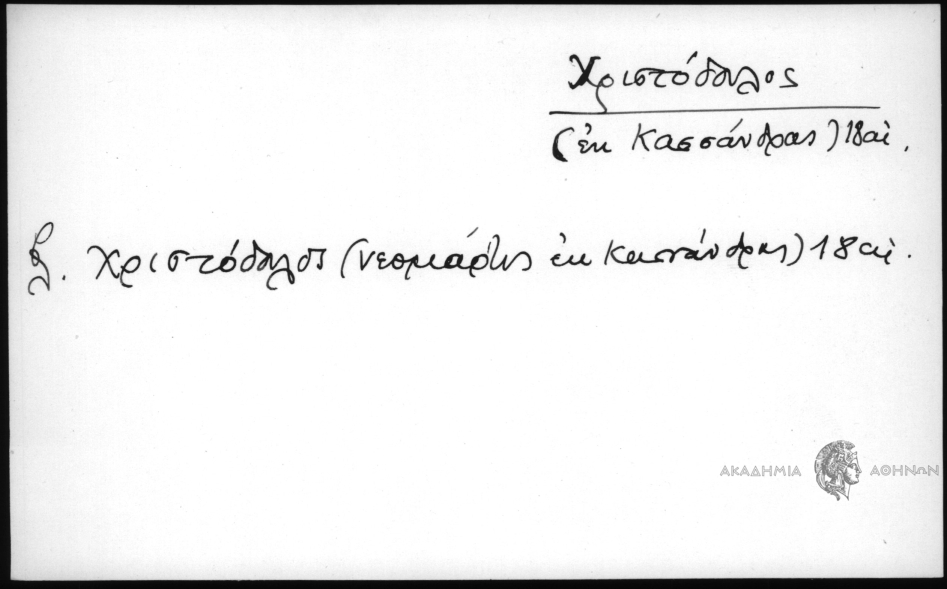 Χριστόδουλος
(ἐκ Κασσάνδρας) 18 αἰ.
βλ. Χριστόδουλος (νεομάρτυς ἐκ Κασσάνδρας) 18 αἰ.
ΑΚΑΔΗΜΙΑ ΑΘΗΝΩΝ